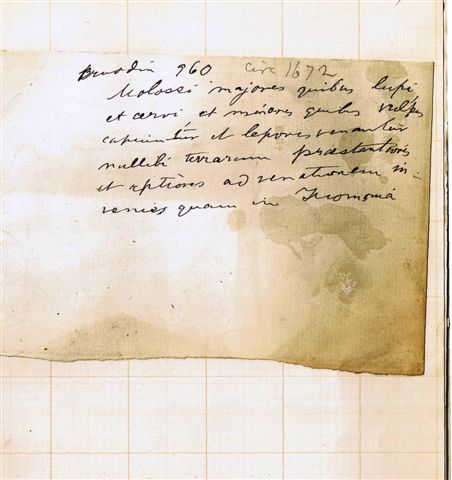 Bruodin 960 circ 1672
Molossi majores quibus lupi
et cervi et minores quibus vulpes
capiuntur et lepores venantur
nullibi terrarum præstantiores
et aptiores ad venationem in-
venies quam in Thomonia